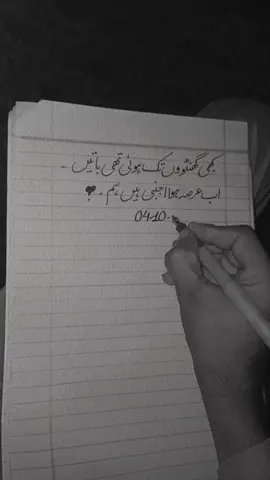 کبھی گھنٹوں تک ہوتی تھی باتیں ۔
اب عرصہ ہوا اجنبی ہیں ہم ۔ ❣
04-10-